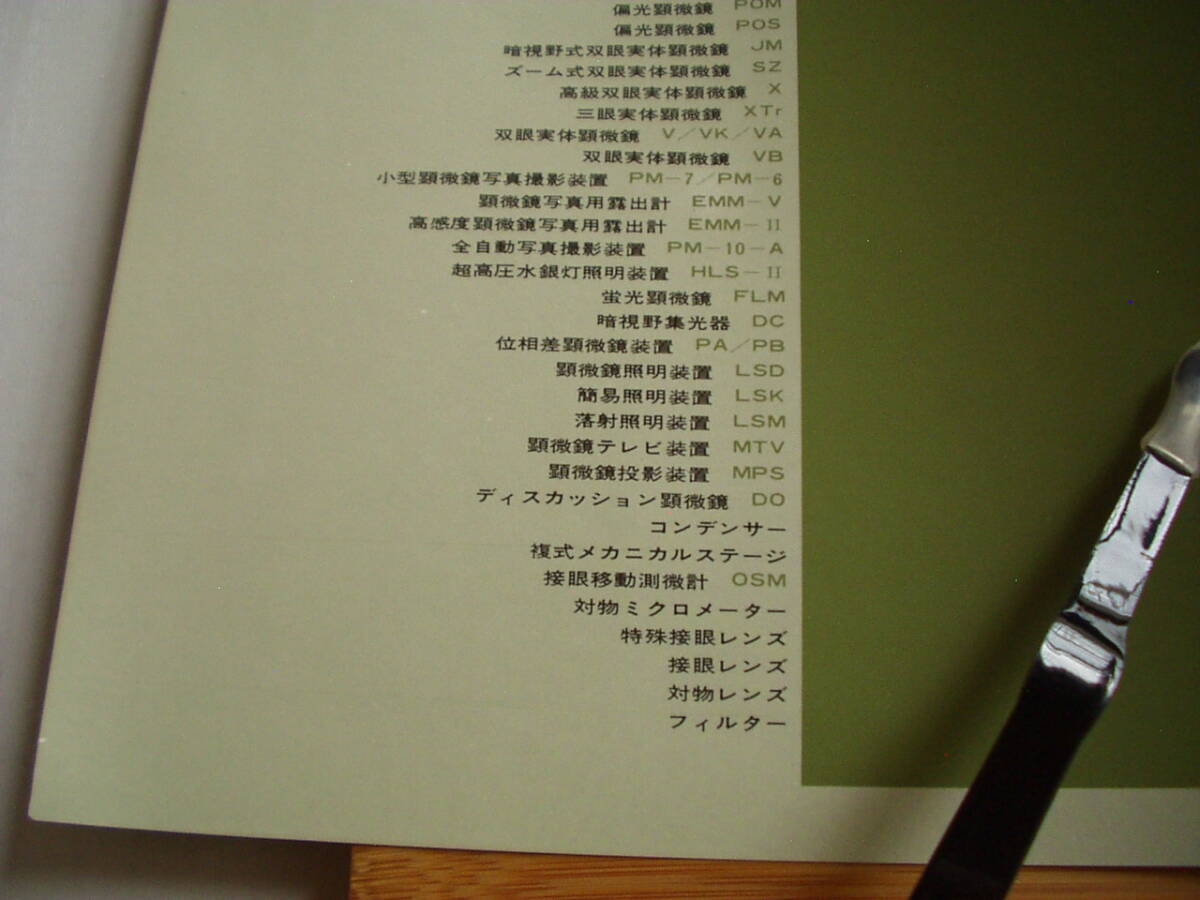 偏光顕微鏡 POM
偏光顕微鏡 POS
暗視野式双眼実体顕微鏡 JM
ズーム式双眼実体顕微鏡 SZ
高級双眼実体顕微鏡 X
三眼実体顕微鏡 XTr
双眼実体顕微鏡 V/VK/VA
双眼実体顕微鏡 VB
小型顕微鏡写真撮影装置 PM-7/PM-6
顕微鏡写真用露出計 EMM-V
高感度顕微鏡写真用露出計 EMM-II
全自動写真撮影装置 PM-10-A
超高圧水銀灯照明装置 HLS-II
蛍光顕微鏡 FLM
暗視野集光器 DC
位相差顕微鏡装置 PA/PB
顕微鏡照明装置 LSD
簡易照明装置 LSK
落射照明装置 LSM
顕微鏡テレビ装置 MTV
顕微鏡投影装置 MPS
ディスカッション顕微鏡 DO
コンデンサー
複式メカニカルステージ
接眼移動測微計 OSM
対物ミクロメーター
特殊接眼レンズ
接眼レンズ
対物レンズ
フィルター